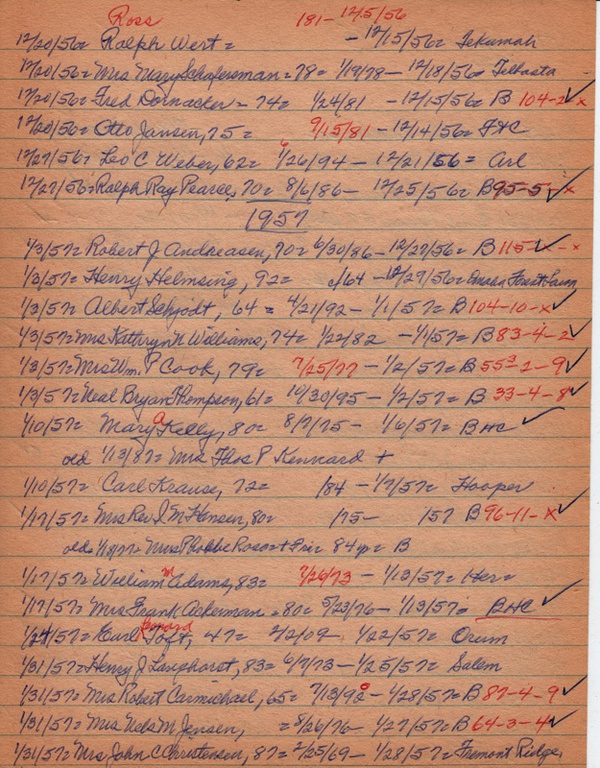 Ross 181- 12/5/56
12/20/56= Ralph Wert= - 12/15/56= Tekamah
12/20/56= Mrs Mary Schafersman=78= 1/19/78- 12/18/56= Telbasta
12/20/56= Fred Dornacker= 74= 1/24/81 -12/15/56= B 104-2 ✓ x
12/20/56= Otto Jansen, 75= 9/15/81 -12/14/56=
12/27/56= Leo C Weber, 62= 9/26/94 - 12/21/56= Arl
12/27/56= Ralph Ray Pearce, 70= 8/6/86- 12/25/56= B 95-5 ✓ x
1957
1/3/57= Robert J Andreasen, 70= 6/30/86-12/27/56= B 115 ✓ - x
1/3/57= Henry Helmsing, 92= /64 -12/29/56=
1/3/57= Albert Schjodt, 64= 4/21/92- 1/1/57= B 104-10-x ✓
1/3/57= Mrs Kathryn N Williams, 74= 1/22/82 -1/1/57= B 83-4-2 ✓
1/3/57= Mrs Wm. P Cook, 79= 7/25/77 -1/2/57= B 55 2-9 ✓
1/3/57= Neal Bryan Thompson, 61= 10/30/95 -1/2/57= B 33-4-8 ✓
1/10/57= Mary a Kelly, 80= 8/7/75- 1/6/57= BHC ✓
old 1/13/87= Mrs Thos P Kennard +
1/10/57= Carl Krause, 72= /84 -1/7/57= Hooper
1/17/57= Mrs Rev. I. M Hansen, 80= /75- /57 B 96-11-x ✓
old= 1/18/77= Mrs Phoebe 84 yr= B
1/17/57= William m Adams, 83= 7/26/73 -1/13/57= Here
1/17/57= Mrs Frank Ackerman=80= 5/23/76- 1/13/57= BHC ✓
1/24/57= Earl Toft, 47= 2/2/09 1/22/57= Orum
1/31/57= Henry J Langhorst, 83= 6/7/73-1/25/57= Salem
1/31/57= Mrs Robert Carmichael, 65= 7/13/92 -1/28/57= B 87-4-9 ✓
1/31/57= Mrs Nels M Jensen, =8/26/76- 1/27/57= B 64-3-4 ✓
1/31/57= Mrs John C Christensen, 87= 2/25/69-1/28/57= Fremont Ridge.